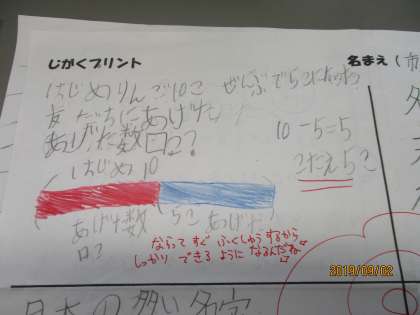 じがくプリント
名まえ(市
はじめりんご10こ ぜんぶで5こになった
友だちにあげた
あげた数□こ?
はじめ 10
10-5=5
こたえ5こ
あげた数 5こ
□?
ならって すぐ ふくしゅうするから
しっかり できる ように なるんだね
2019/09/02
日本の多い名字